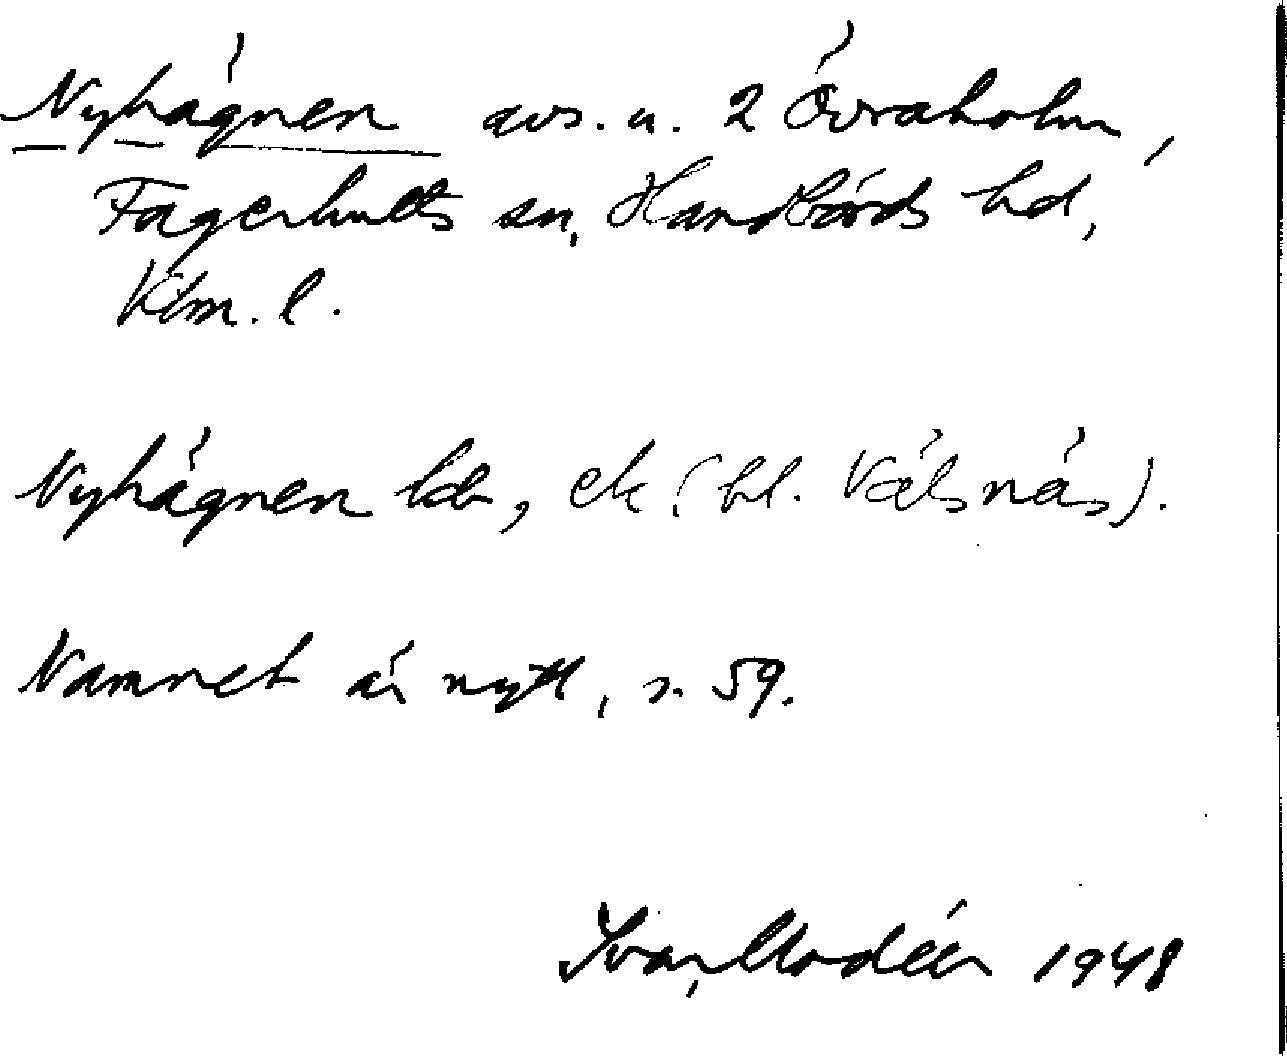 Nyhägnen avs. u. 2 Övraholm,
Fagerhults sn, Handbörds hd,
Klm. l.
Nyhägnen lds, ek (bl. Välsnäs).
Namnet är nytt, s. 59.
Ivar Modéer 1948